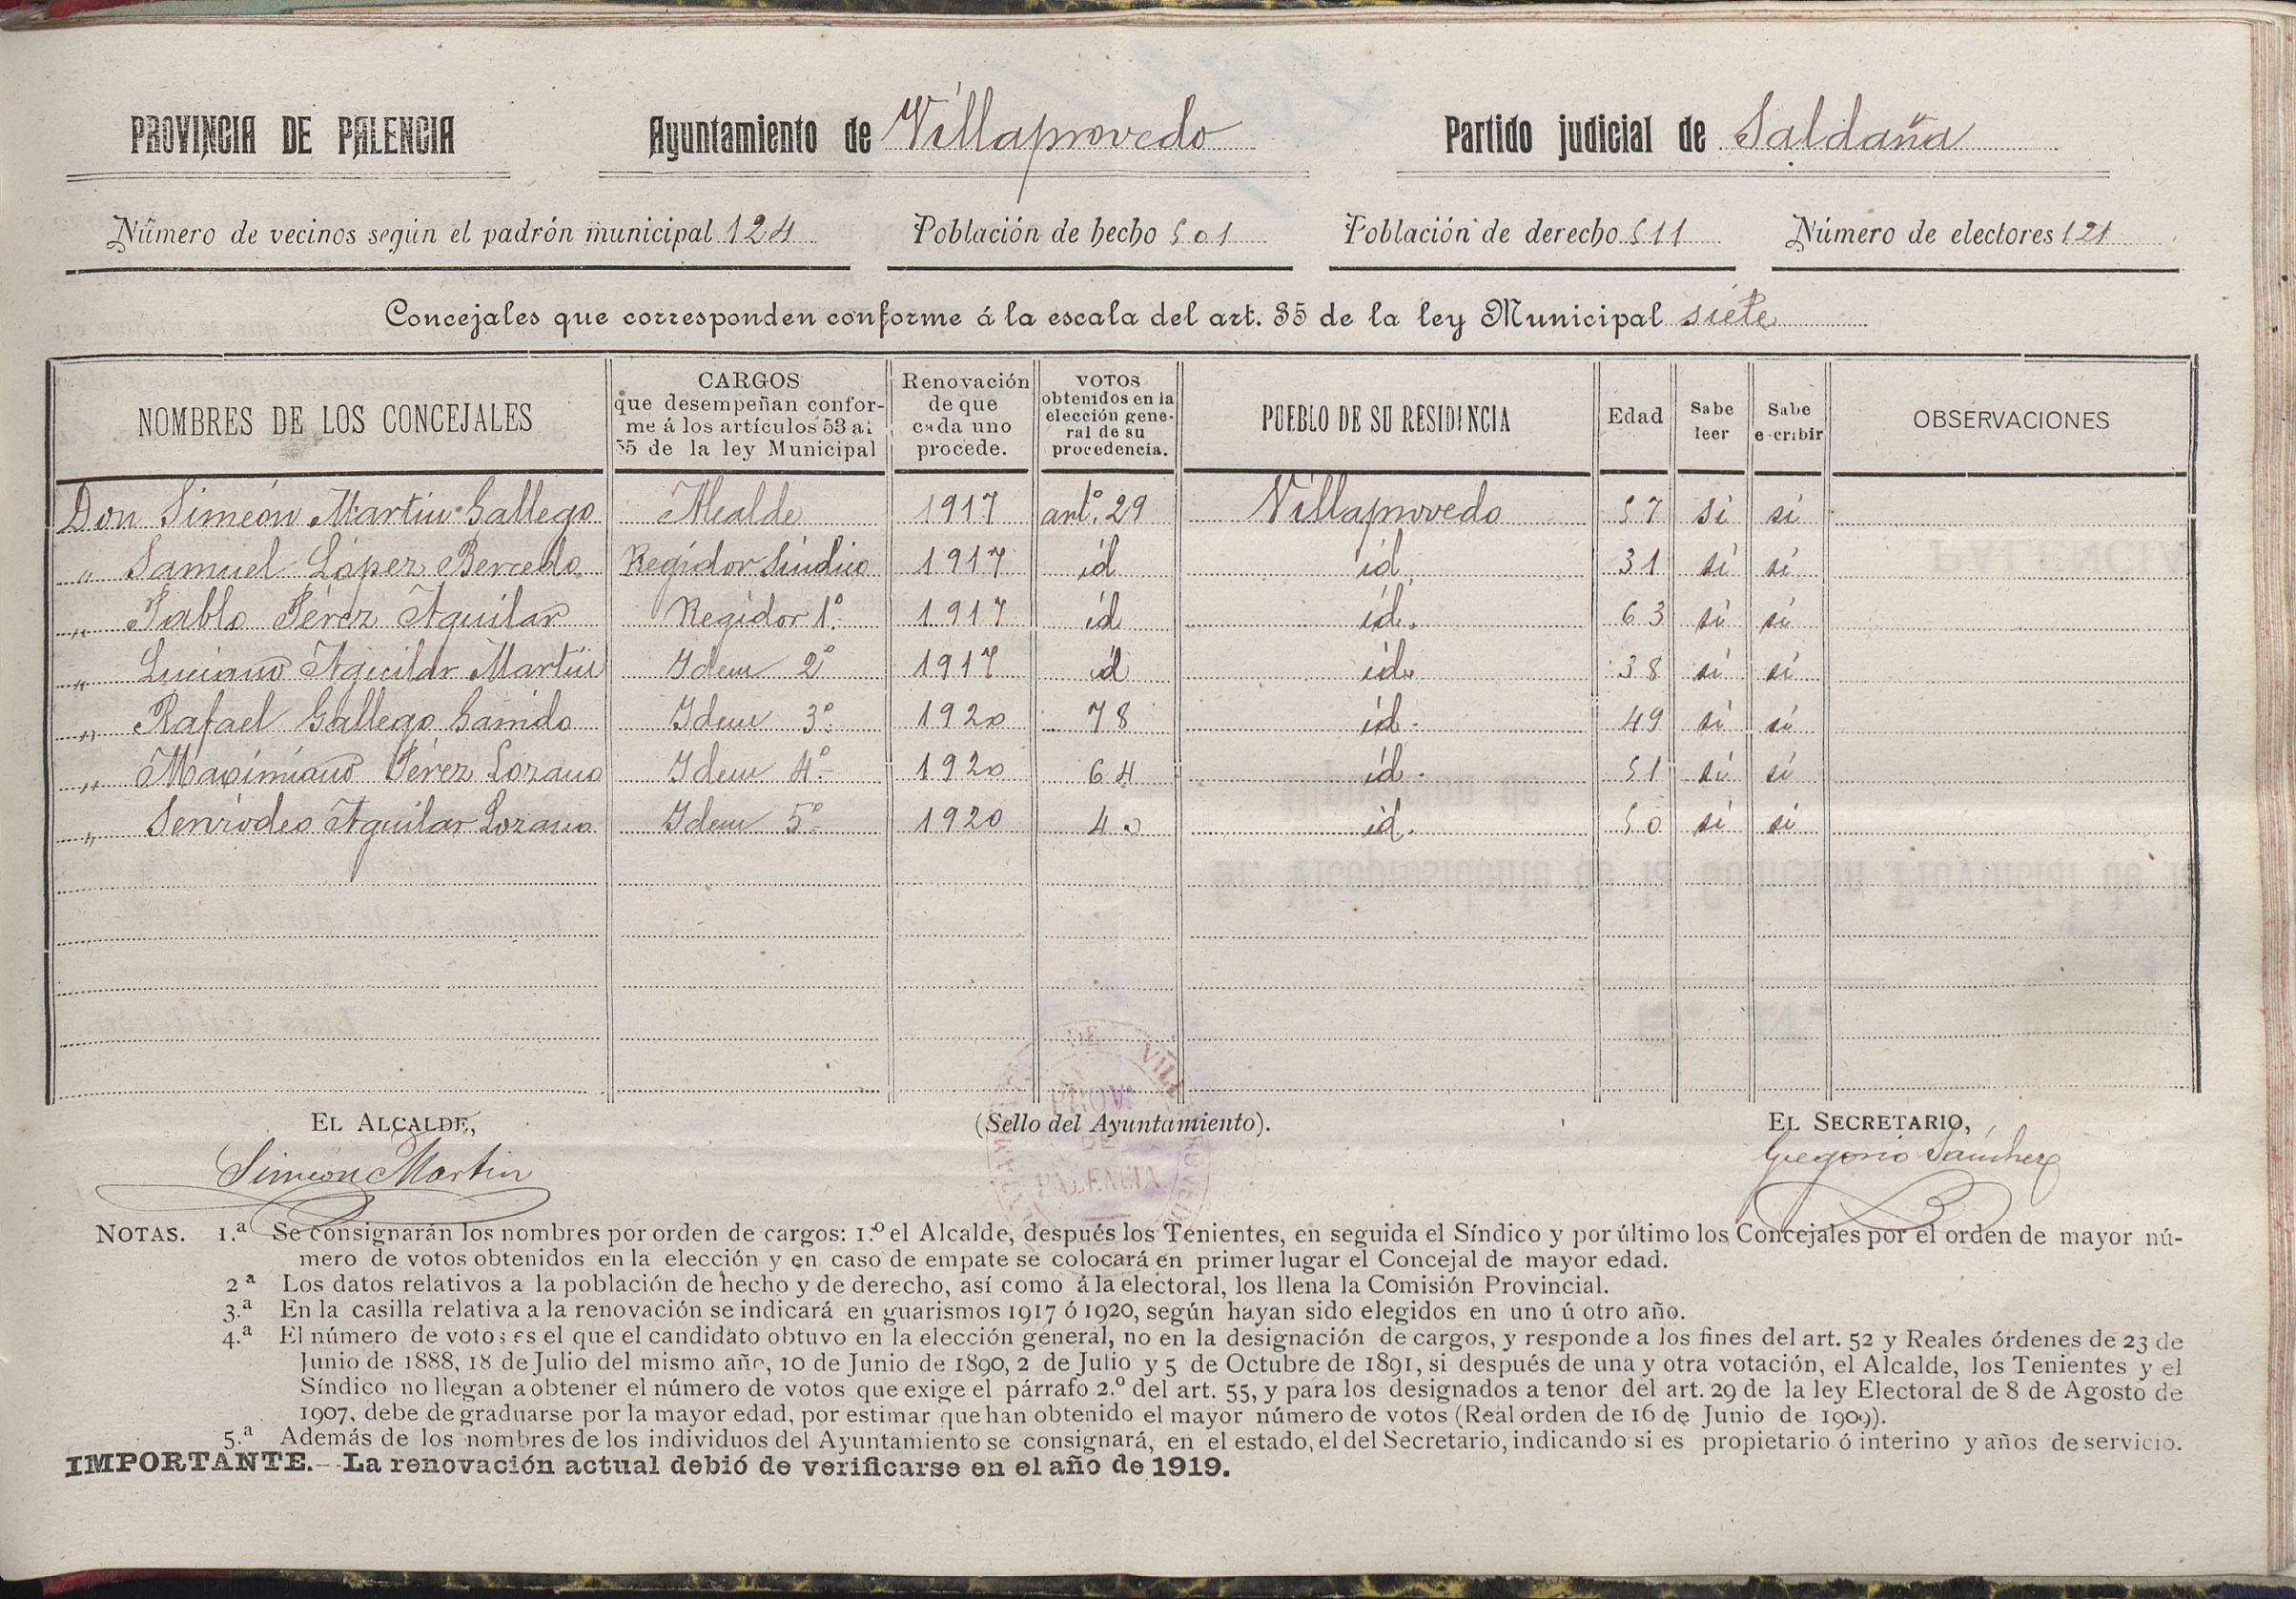 PROVINCIA DE PALENCIA Ayuntamiento de Villaprovedo Partido judicial de Saldaña
Número de vecinos según el padrón municipal 124 Población de hecho 501 Población de derecho 511 Número de electores 121
Concejales que corresponden conforme á la escala del art. 35 de la ley Municipal siete
NOMBRES DE LOS CONCEJALES
CARGOS
que desempeñan confor-
me á los artículos 53 al
55 de la ley Municipal
Renovación
de que
cada uno
procede.
VOTOS
obtenidos en la
elección gene-
ral de su
procedencia.
PUEBLO DE SU RESIDENCIA
Edad
Sabe
leer
Sabe
escribir
OBSERVACIONES
Don Simeón Martín Gallego Alcalde 1917 artº. 29 Villaprovedo 57 si si
" Samuel López Bercedo Regidor Síndico 1917 id id. 31 si si
" Pablo Pérez Aguilar Regidor 1º 1917 id id. 63 si si
" Luciano Aguilar Martín Idem 2º 1917 id id. 38 si si
" Rafael Gallego Garrido Idem 3º 1920 78 id. 49 si si
" Maximiano Pérez Lozano Idem 4º 1920 64 id. 51 si si
" Aguilar Lozano Idem 5º 1920 40 id. 50 si si
EL ALCALDE, (Sello del Ayuntamiento). EL SECRETARIO,
Simeón Martin Gregorio Sánchez
DE VILL
PROVª
DE
PALENCIA
NOTAS. 1.ª Se consignarán los nombres por orden de cargos: 1.º el Alcalde, después los Tenientes, en seguida el Síndico y por último los Concejales por el orden de mayor nú-
mero de votos obtenidos en la elección y en caso de empate se colocará en primer lugar el Concejal de mayor edad.
2ª Los datos relativos a la población de hecho y de derecho, así como á la electoral, los llena la Comisión Provincial.
3.ª En la casilla relativa a la renovación se indicará en guarismos 1917 ó 1920, según hayan sido elegidos en uno ú otro año.
4.ª El número de votos es el que el candidato obtuvo en la elección general, no en la designación de cargos, y responde a los fines del art. 52 y Reales órdenes de 23 de
Junio de 1888, 18 de Julio del mismo año, 10 de Junio de 1890, 2 de Julio y 5 de Octubre de 1891, si después de una y otra votación, el Alcalde, los Tenientes y el
Síndico no llegan a obtener el número de votos que exige el párrafo 2.º del art. 55, y para los designados a tenor del art. 29 de la ley Electoral de 8 de Agosto de
1907, debe de graduarse por la mayor edad, por estimar que han obtenido el mayor número de votos (Real orden de 16 de Junio de 1909).
5.ª Además de los nombres de los individuos del Ayuntamiento se consignará, en el estado, el del Secretario, indicando si es propietario ó interino y años de servicio.
IMPORTANTE.--La renovación actual debió de verificarse en el año de 1919.